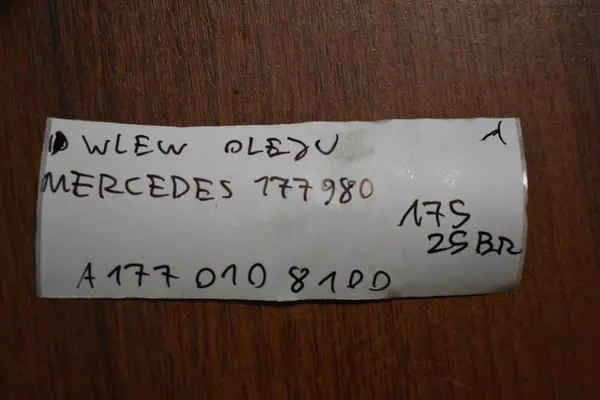 WLEW OLEJU 1
MERCEDES 177980
175
25BR
A 177 010 8100